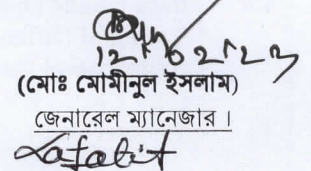 12/02/23
(মোঃ মোমীনুল ইসলাম)
জেনারেল ম্যানেজার ।